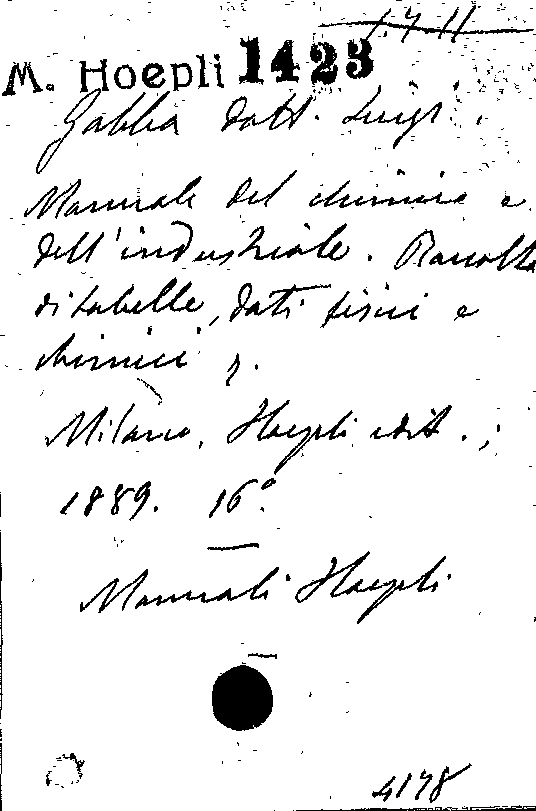 1.7.11
M. Hoepli 1423
Gabba dott. Luigi.
Manuale del chimico e
dell'industriale. Raccolta
di tabelle, dati fisici e
chimici
Milano, Hoepli edit.;
1889. 16°
Manuali Hoepli
4178